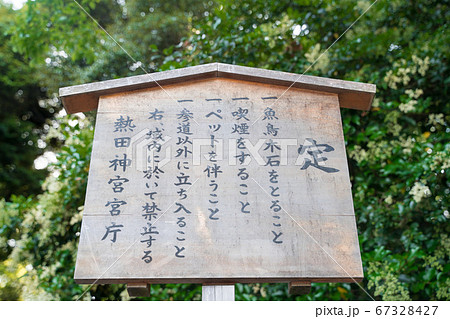 定
一魚鳥木石をとること
一喫煙をすること
一ペットを伴うこと
一参道以外に立ち入ること
右域内に於いて禁止する
熱田神宮宮庁
pixta.jp - 67328427